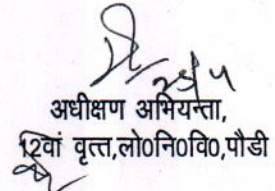 अधीक्षण अभियन्ता,
12वां वृत्त,लो0नि0वि0,पौडी